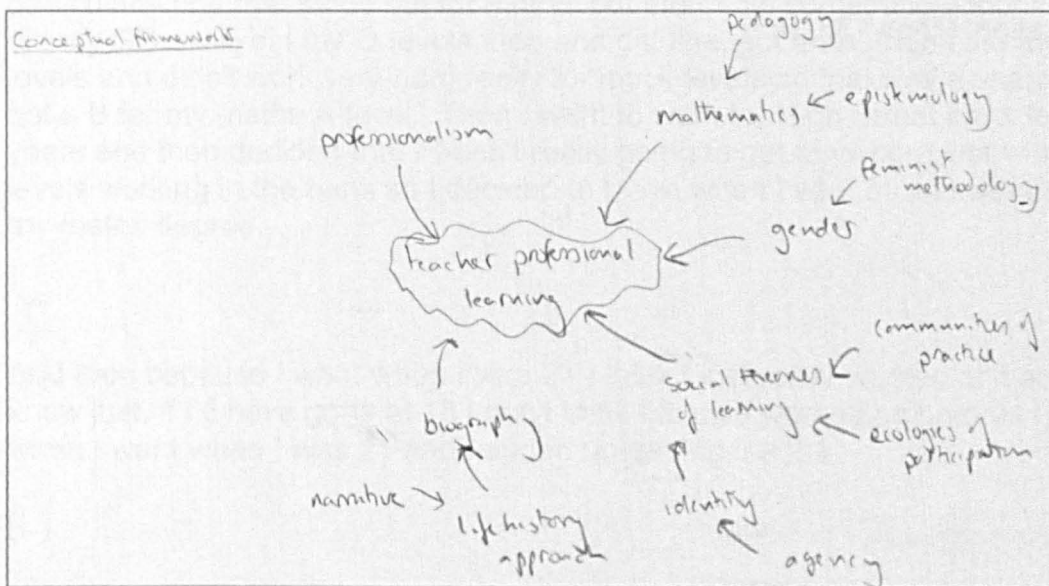 Conceptual framework
pedagogy
professionalism
mathematics
epistemology
feminist
methodology
gender
teacher professional
learning
communities of
practice
social theories
of learning
ecologies of
participation
biography
narrative
life history
approach
identity
agency